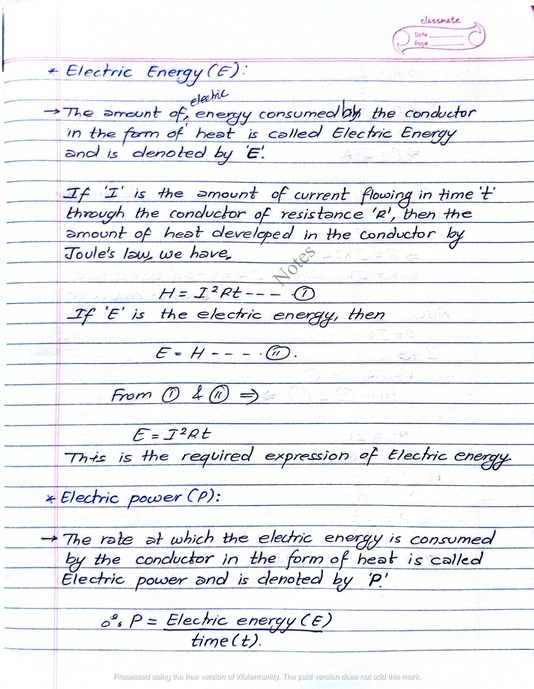 classmate
Date
Page
* Electric Energy (E):
→ The amount of electric energy consumed by the conductor
in the form of heat is called Electric Energy
and is denoted by 'E'.
If 'I' is the amount of current flowing in time 't'
through the conductor of resistance 'R', then the
amount of heat developed in the conductor by
Joule's law, we have,
Notes
H = I²Rt --- (i)
If 'E' is the electric energy, then
E = H ---- (ii).
From (i) & (ii) ⇒
E = I²Rt
This is the required expression of Electric energy.
* Electric power (P):
→ The rate at which the electric energy is consumed
by the conductor in the form of heat is called
Electric power and is denoted by 'P'.
∴ P = Electric energy (E)
time (t).
Processed using the free version of Watermarkly. The paid version does not add this mark.